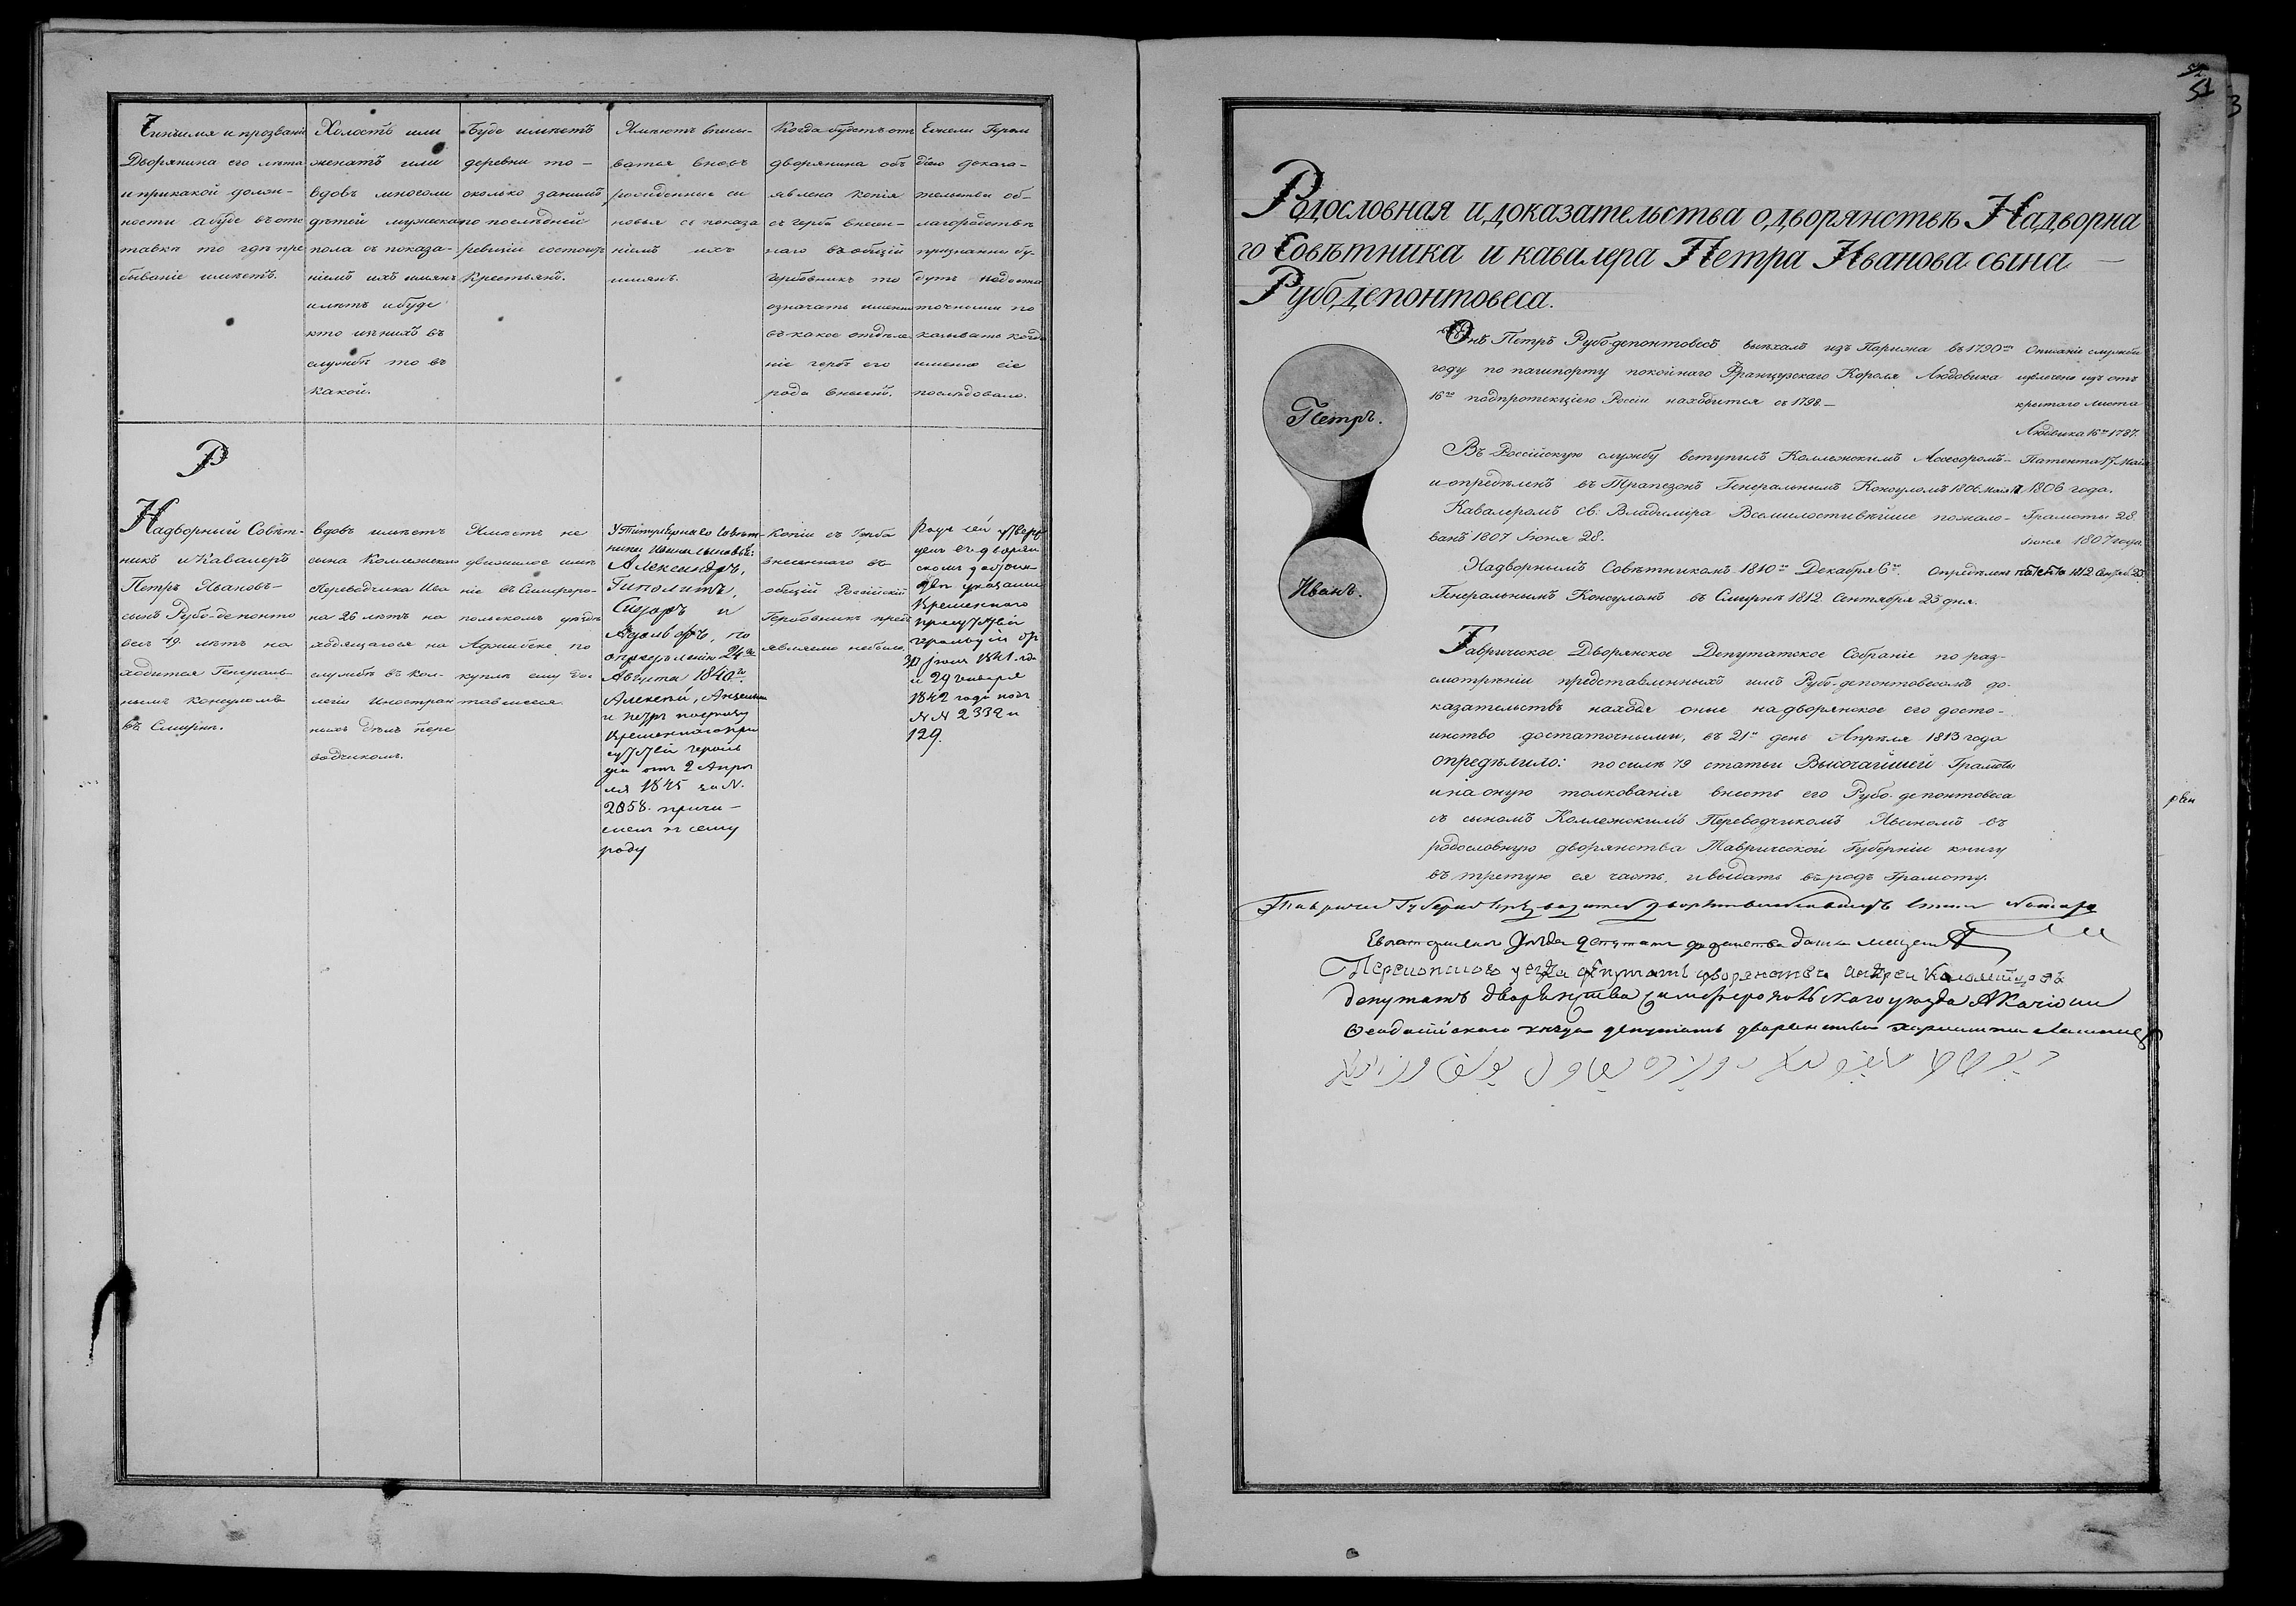 Чинъимя и прозвание
Дворянина его лѣта
и при какой долж-
ности а буде въ отс
тавкѣ то гдѣ пре
бываніе имѣетъ.
Холостъ или
женатъ или
вдовъ многоли
дѣтей мужеска
пола съ показа-
ніемъ ихъ имянъ
и лѣтъ и буде
кто изъ нихъ въ
службѣ то въ
какой.
Буде имѣетъ
деревни то-
сколько занимъ
по послѣдней
ревизіи состоитъ
Крестьянъ.
Имѣютъ впиcы-
ватся вновь
рожденные сы
новья съ показа
ніемъ ихъ
имянъ.
Когда будетъ отъ
дворянина объ
явлена копія
съ герба внесен-
наго въ общій
гербовникъ то
означать именно
въ какое отдѣле
ніе гербъ его
рода внесенъ.
Ежели Герол
діею доказа-
тельства об-
лагородствѣ
признанны бу-
дутъ недоста
точными по
казывать когда
именно сіе
послѣдовало.
Р
Надворный Совѣт-
никъ и Кавалеръ
Петръ Ивановъ-
сынъ Рубо-де понто
весъ 49 лѣтъ на
ходится Генераль
нымъ консуломъ
въ Смирнѣ.
Вдовъ имѣетъ
сына Коллежскаго
Переводчика Ива
на 26 лѣтъ на
ходящагося на
службѣ въ кол-
легіи Иностран
ныхъ Дѣлъ пере
водчикомъ.
Имѣетъ не
движимое имѣ
ніе въ Симферо-
польскомъ уѣздѣ
Аджибеке по
куплѣ ему до-
ставшееся
У Титулярнаго Совѣт-
ника Ивана сыновья:
Александръ,
Гиполитъ,
Сидоръ и
Адольфъ, по
опредѣленію 24го
Августа 1840го
Алексѣй,
и Петръ по указу
временнаго при
сутствія героль
діи отъ 2 Апрѣ
ля 1845 за N.
2858. причи-
слены къ сему
роду
Копіи съ Герба
внесеннаго въ
общій Россійскій
Гербовникъ пред
являемо небыло.
Родъ сей утверж
денъ въ дворян
скомъ достоин-
ствѣ указами
Временнаго
присутствія
герольдіи отъ
30 іюня 1841 го
и 29 Генваря
1842 года подъ
N N 2332 и
129.
51
3
Родословная и доказательства о дворянствѣ Надворна
го Совѣтника и кавалера Петра Иванова сына –
Рубодепонтовеса.
Петръ.
Иванъ.
Онъ Петръ Рубо-депонтовесъ выѣхалъ изъ Парижа въ 1790мъ
году по пашпорту покойнаго Французскаго Короля Людовика
16го подпротекціею Россіи находится съ 1798.–
Описаніе службы
извлечено изъ отъ
крытаго листа
Людвика 16го 1787.
Въ Россійскую службу вступилъ Коллежскимъ Ассесоромъ-
и опредѣленъ въ Трапезонъ Генеральнымъ Консуломъ 1806 Мая 17
Патента 17 Маія
1806 года.
Кавалеромъ св: Владиміра Всемилостивѣйше пожало-
ванъ 1807 іюня 28.
Грамоты 28
іюня 1807 года
Надворнымъ Совѣтникомъ 1810го Декабря 6го. Опредѣленъ
Генеральнымъ Консуломъ въ Смирнѣ 1812 Сентября 23 дня.
Таврическое Дворянское Депутатское Собраніе по раз-
смотрѣніи представленныхъ имъ Рубо-депонтовесомъ до-
казательствъ находя оные надворянское его досто-
инство достаточными, въ 21й день Апрѣля 1813 года
опредѣлило: по силѣ 79 статьи Высочайшей Грамоты
и на оную толкованія внесть его Рубо-депонтовеса
съ сыномъ Коллежскимъ Переводчикомъ Иваномъ въ
родословную дворянства Таврической Губерніи книгу
въ третую ея часть, и выдать въ родъ Грамоту.
Перекопскаго уезда депутатъ дворянства Андрей
депутатъ Дворянства Симферопольскаго уезда
Феодосійскаго уезда депутатъ дворянства